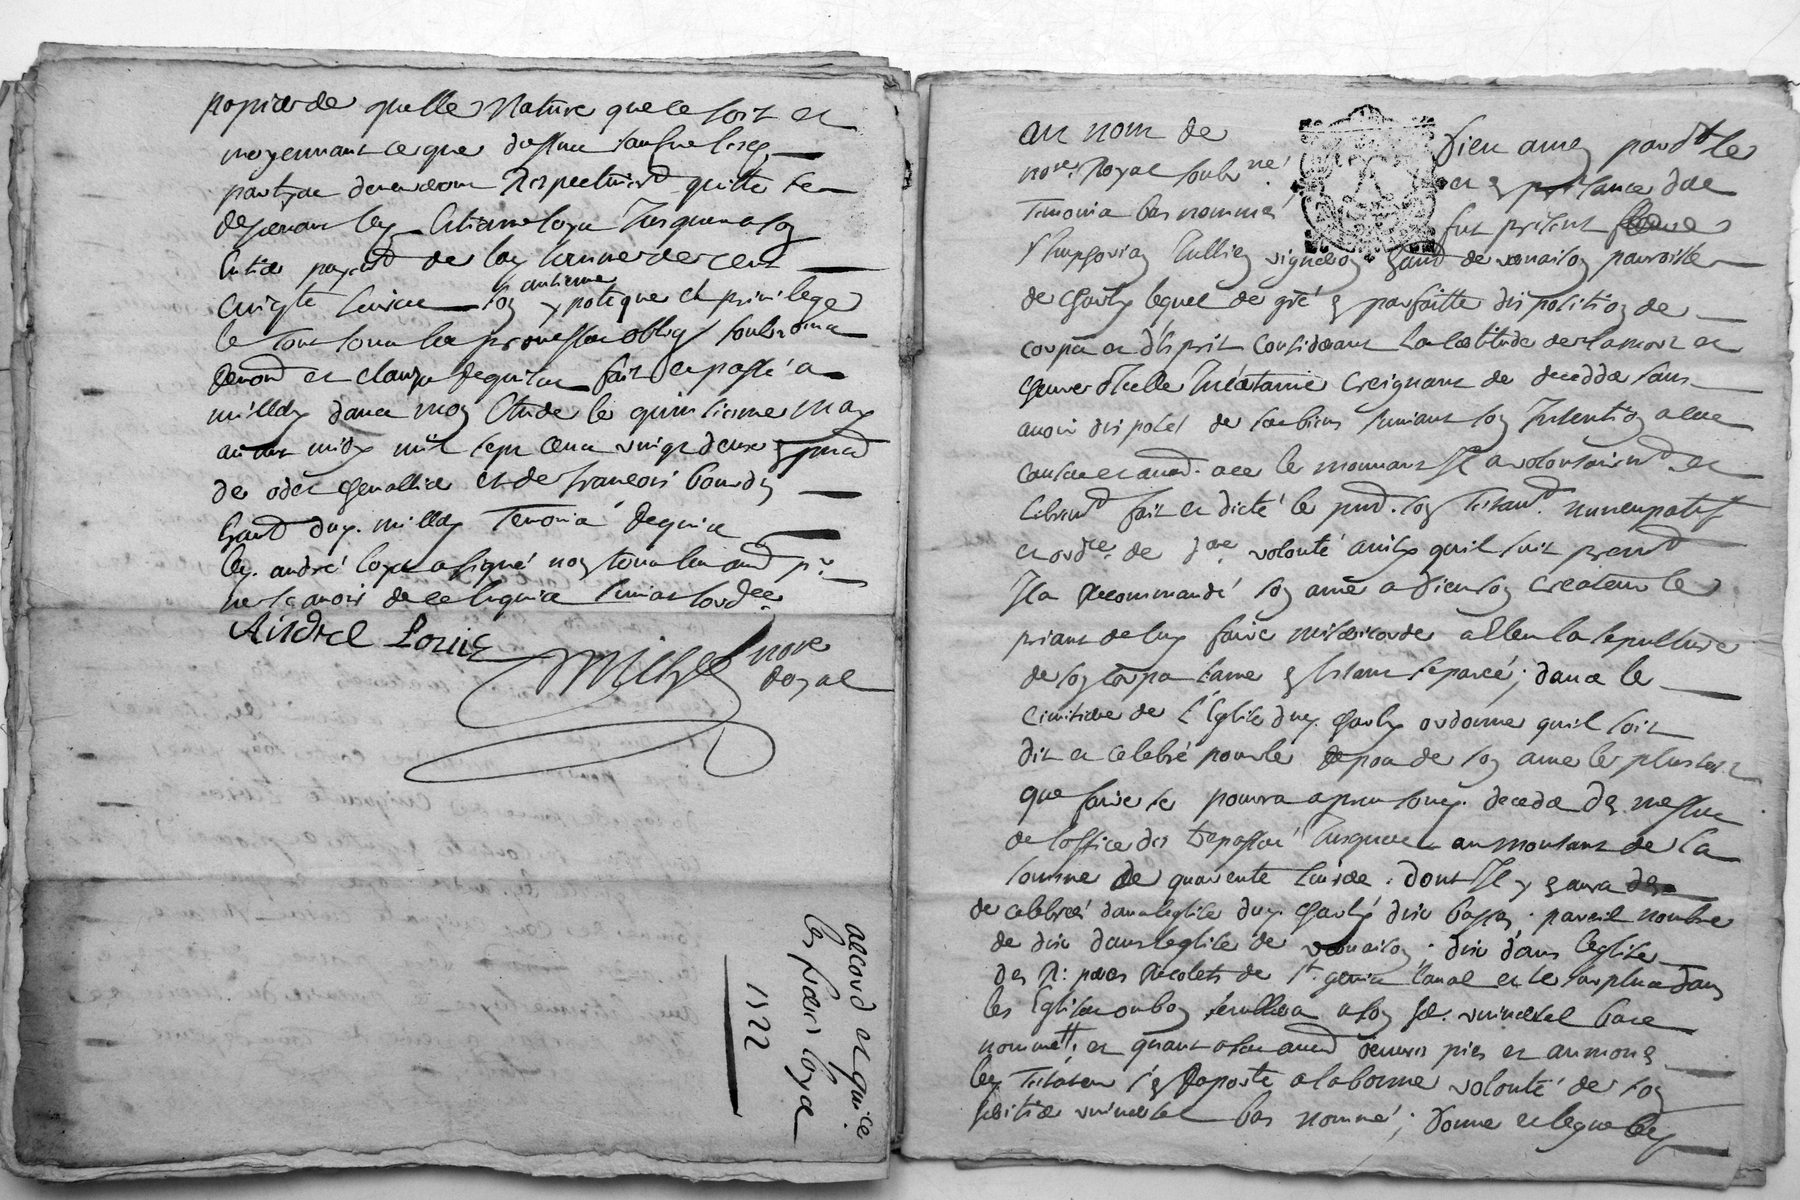 papier de quelle nature que ce soit et
moyennant ce que dessus
parties demeurent respectivemt quitte se
reservant led. Estienne loyer jusques a son
entier payemt de lad. somme de cent
cinqte livres son antienne ypoteque et privilege
le tout sous les promesses oblig soubmions
renond et clauzes dequises fait et passé a
milléry dans mon etude le quinsieme may
avant midy mil sept cens vingt deux en prnce
de odet chevallier et de françois bourdin
habt dud. milléry temoins requis
led. andré loyer a signé non tous les aud pes
ne scavoir de ce enquis suivant lordce
André Loyer
michel nore
Royal
accord et quitce
les freres loyer
1722
au nom de Dieu amen pardt le
nore Royal soubsné et en presance des
temoins bas nommés fut present
Simphorien Jullien vigneron habt de vernaison paroisse
de charly lequel de gré en parfaitte disposition de
corps et d'esprit considerant la certitude de la mort et
heure d'icelle incertaine creignant de decedder sans
avoir disposé de ses biens suivant son intention a ces
causes et aud. ace le mouvant Il a volontairemt et
libremt fait et dicté le pnt. son testamt nuncupatif
et ordce de dre volonté ainsy quil suit premt
Il a recommandé son ame a Dieu son createur le
priant de luy faire misericorde allen la sepulture
de son corps lame en estant separée; dans le
cimitiere de l'Eglise dud. charly ordonne quil soit
dit et celebré pour le repos de son ame le plustost
que faire se pourra apres sond. deceds des messes
de loffice des trepassés jusques au montant de la
somme de quarente livres. dont Il y en aura
de celebrées dans leglise dud. charly dix basses. pareil nombre
de dix dans leglise de vernaison; dix dans leglise
des R: peres Recolets de St. genis laval et le surplus dans
les Eglises ou bon semblera a son ht. universel bas
nommé; et quant a ses aud œuvres pies et aumones
led. testateur s'en raporte a la bonne volonté de son
heritier universel bas nommé; Donne et legue led